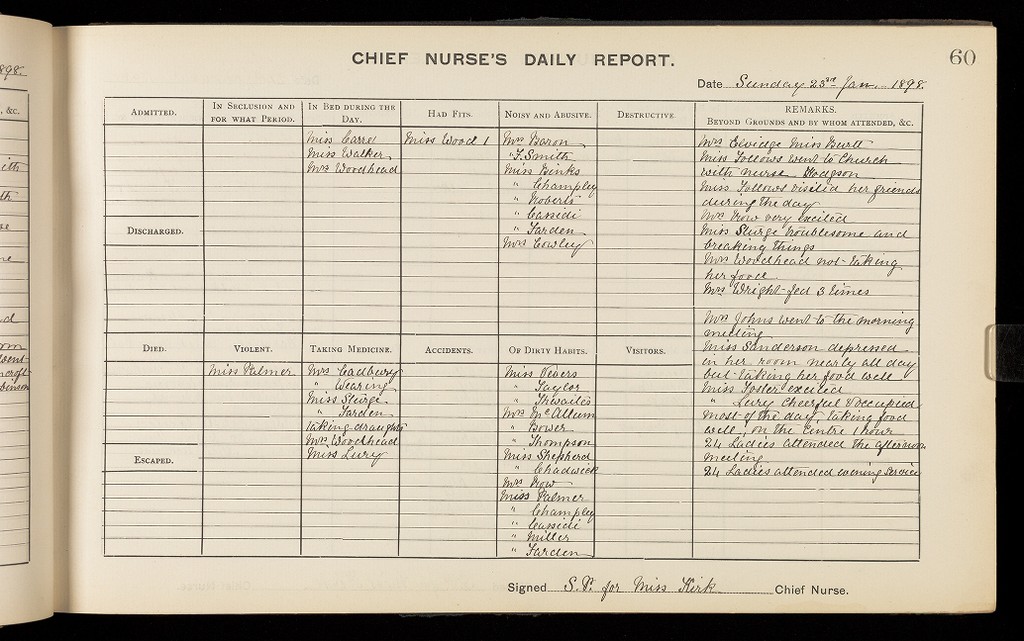 CHIEF NURSE'S DAILY REPORT.
60
Date Sunday 23rd Jan. 1898.
ADMITTED.
DISCHARGED.
DIED.
ESCAPED.
IN SECLUSION AND
FOR WHAT PERIOD.
VIOLENT.
Miss Palmer
IN BED DURING THE
DAY.
Miss Carre
Miss Walker
Mrs Woodhead
TAKING MEDICINE.
Mrs Cadbury
" Wearing
Miss Sturge
" Farden
taking draughts
Mrs Woodhead
Miss Lury
HAD FITS.
Miss Wood 1
ACCIDENTS.
NOISY AND ABUSIVE.
Mrs Baron
" F. Smith
Miss Binks
" Champley
" Roberts
" Cassidi
" Farden
Mrs Cowley
OF DIRTY HABITS.
Miss Vevers
" Taylor
" Thwaites
Mrs McAllum
" Bower
" Thompson
Miss Shepherd
" Chadwick
Mrs Row
Miss Palmer
" Champley
" Cassidi
" Miller
" Farden
DESTRUCTIVE.
VISITORS.
REMARKS.
BEYOND GROUNDS AND BY WHOM ATTENDED, &C.
Mrs Elvidge Miss Burtt
Miss Follows went to Church
with nurse Hodgson
Miss Follows visited her friends
during the day
Mrs Row very excited
Miss Sturge troublesome and
breaking things
Mrs Woodhead not taking
her food
Mrs Wright fed 3 times
Mrs Johns went to the morning
meeting
Miss Sanderson depressed
in her room nearly all day
but taking her food well
Miss Foster excited
" Lury cheerful & occupied
most of the day, taking food
well, on the Centre 1 hour
24 Ladies attended the afternoon
meeting
24 Ladies attended evening service
Signed S.P. for Miss Kirk Chief Nurse.